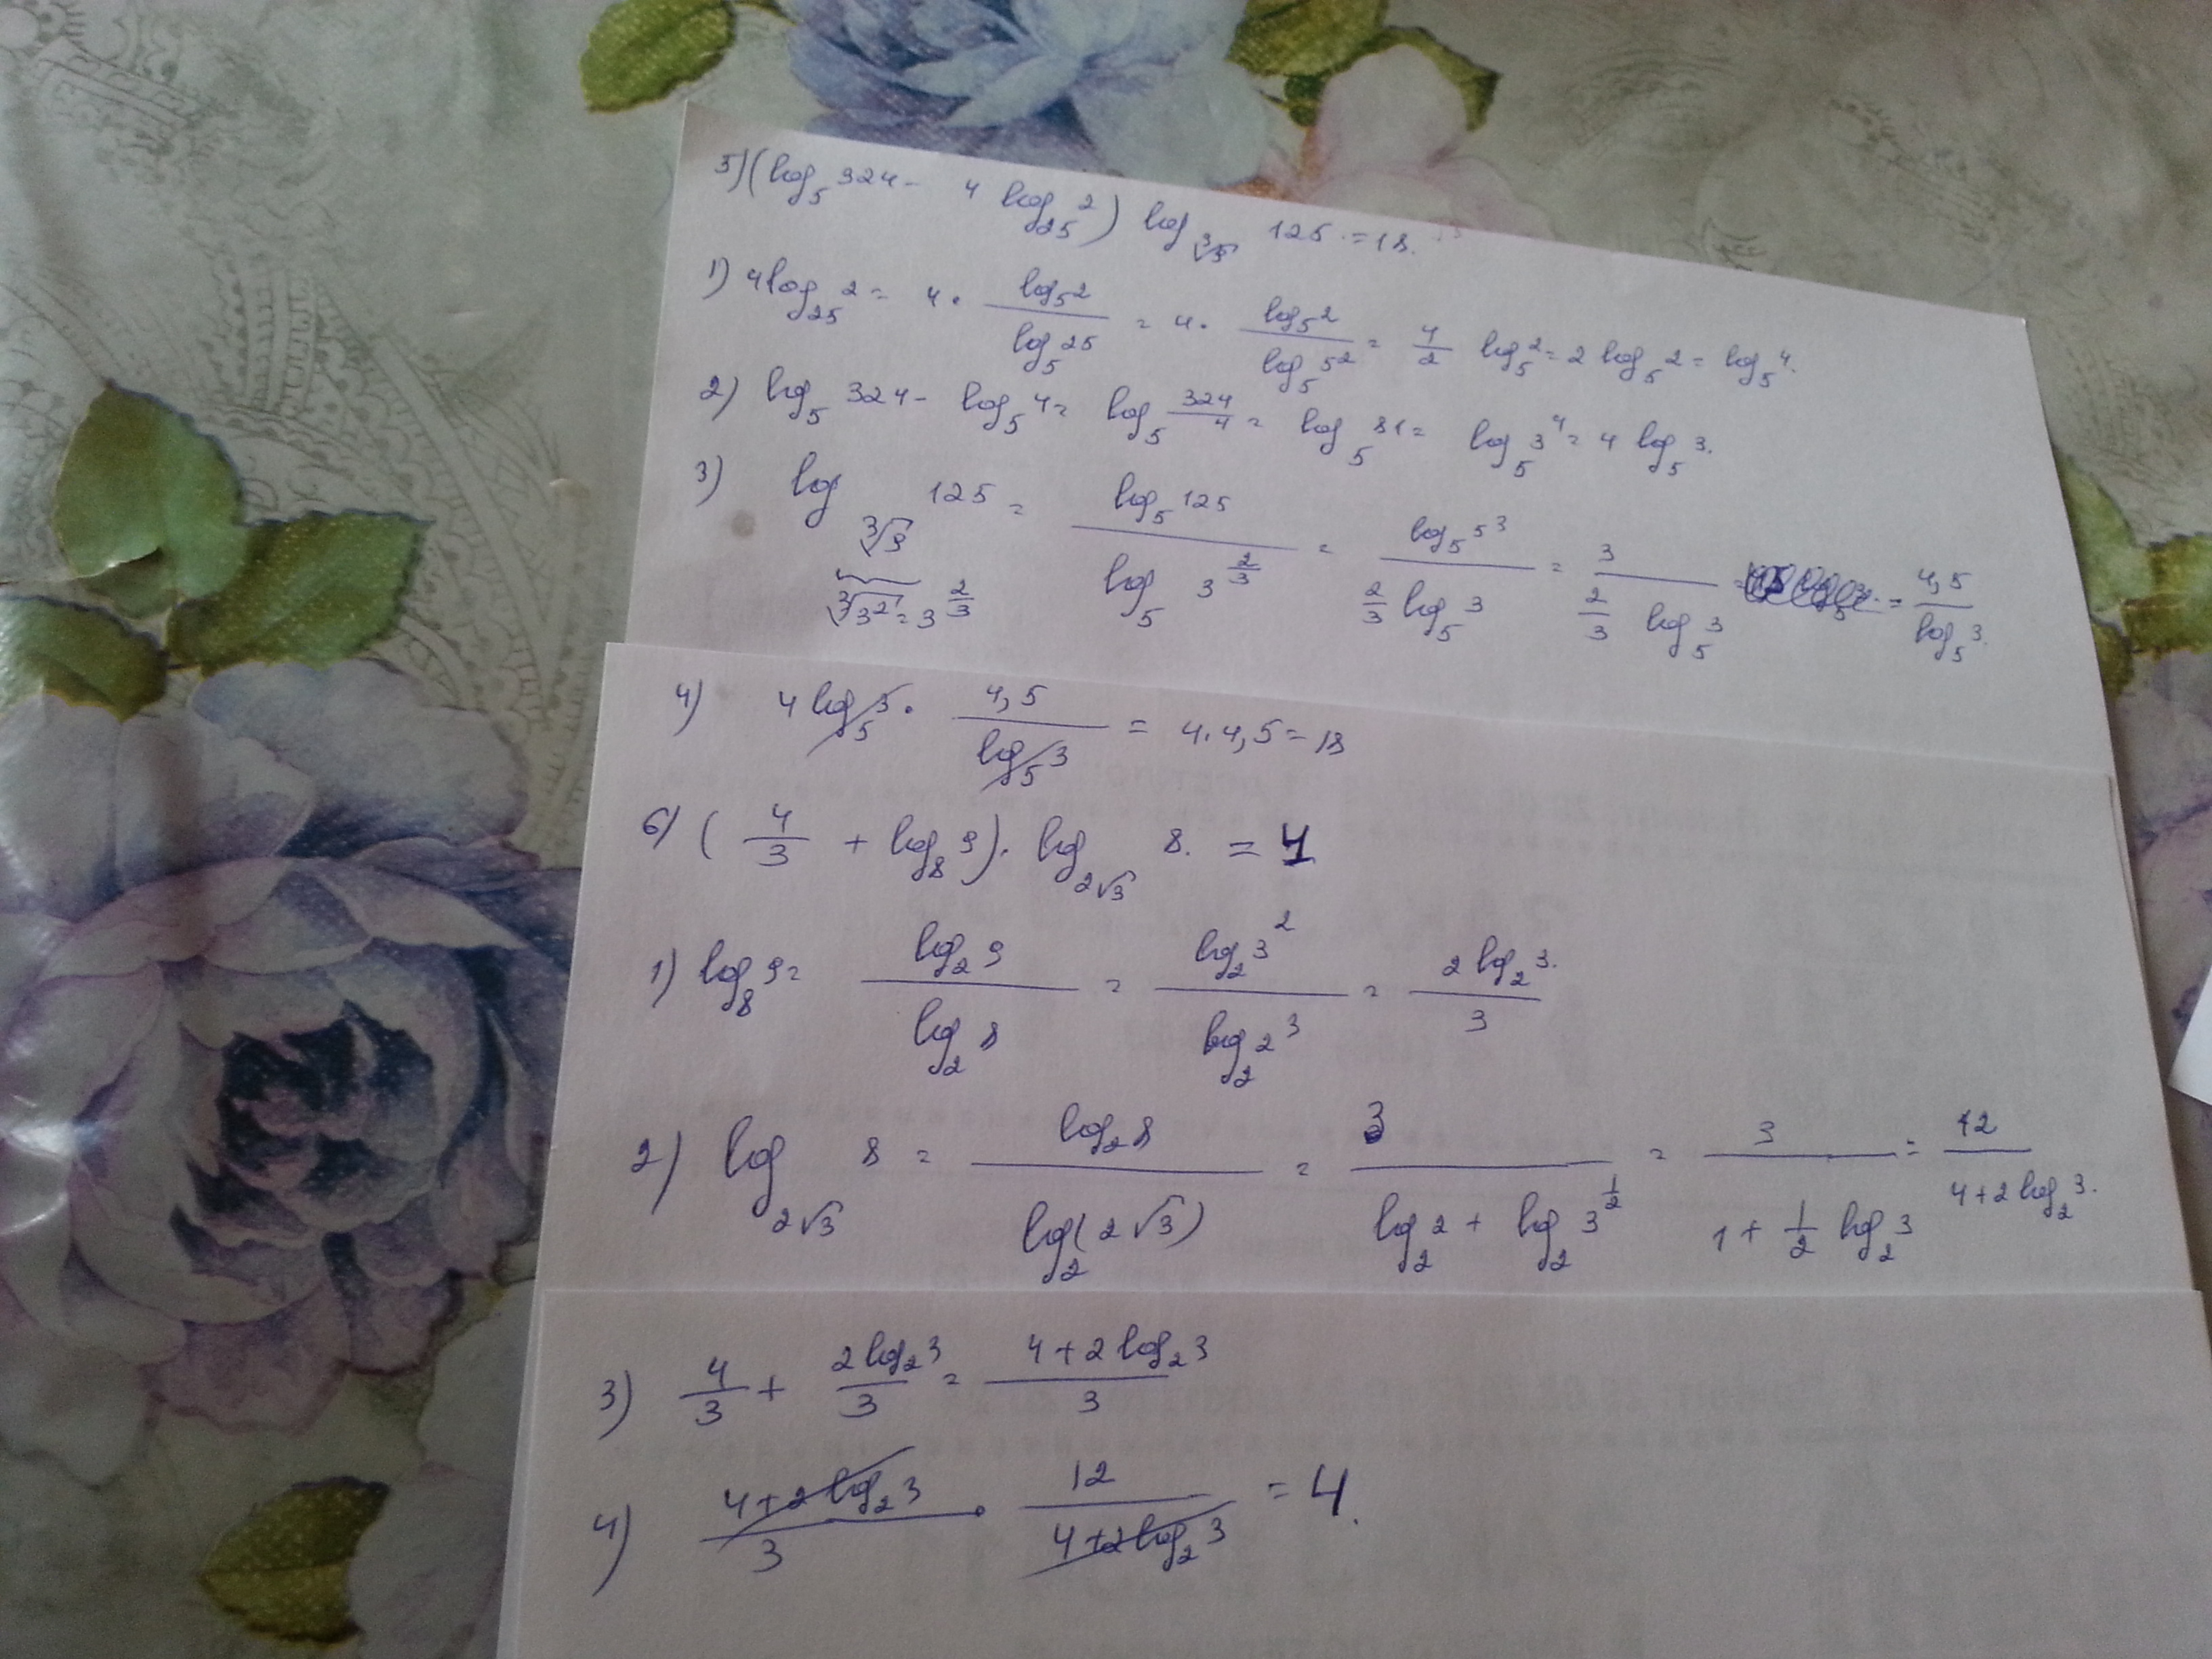 5) (log₅ 324 - 4 log₂₅ 2) log_∛9 125 = 18.
1) 4 log₂₅ 2 = 4 · log₅ 2 / log₅ 25 = 4 · log₅ 2 / log₅ 5² = 4/2 log₅ 2 = 2 log₅ 2 = log₅ 4.
2) log₅ 324 - log₅ 4 = log₅ 324/4 = log₅ 81 = log₅ 3⁴ = 4 log₅ 3.
3) log_∛9 125 = log₅ 125 / log₅ 3^(2/3) = log₅ 5³ / (2/3 log₅ 3) = 3 / (2/3 log₅ 3) = 4,5 / log₅ 3.
∛3² = 3^(2/3)
4) 4 log₅ 3 · 4,5 / log₅ 3 = 4 · 4,5 = 18
6) (4/3 + log₈ 9) · log_2√3 8. = 4
1) log₈ 9 = log₂ 9 / log₂ 8 = log₂ 3² / log₂ 2³ = 2 log₂ 3. / 3
2) log_2√3 8 = log₂ 8 / log₂ (2√3) = 3 / (log₂ 2 + log₂ 3^(1/2)) = 3 / (1 + 1/2 log₂ 3) = 12 / (4 + 2 log₂ 3.)
3) 4/3 + 2 log₂ 3 / 3 = (4 + 2 log₂ 3) / 3
4) (4 + 2 log₂ 3) / 3 · 12 / (4 + 2 log₂ 3) = 4.